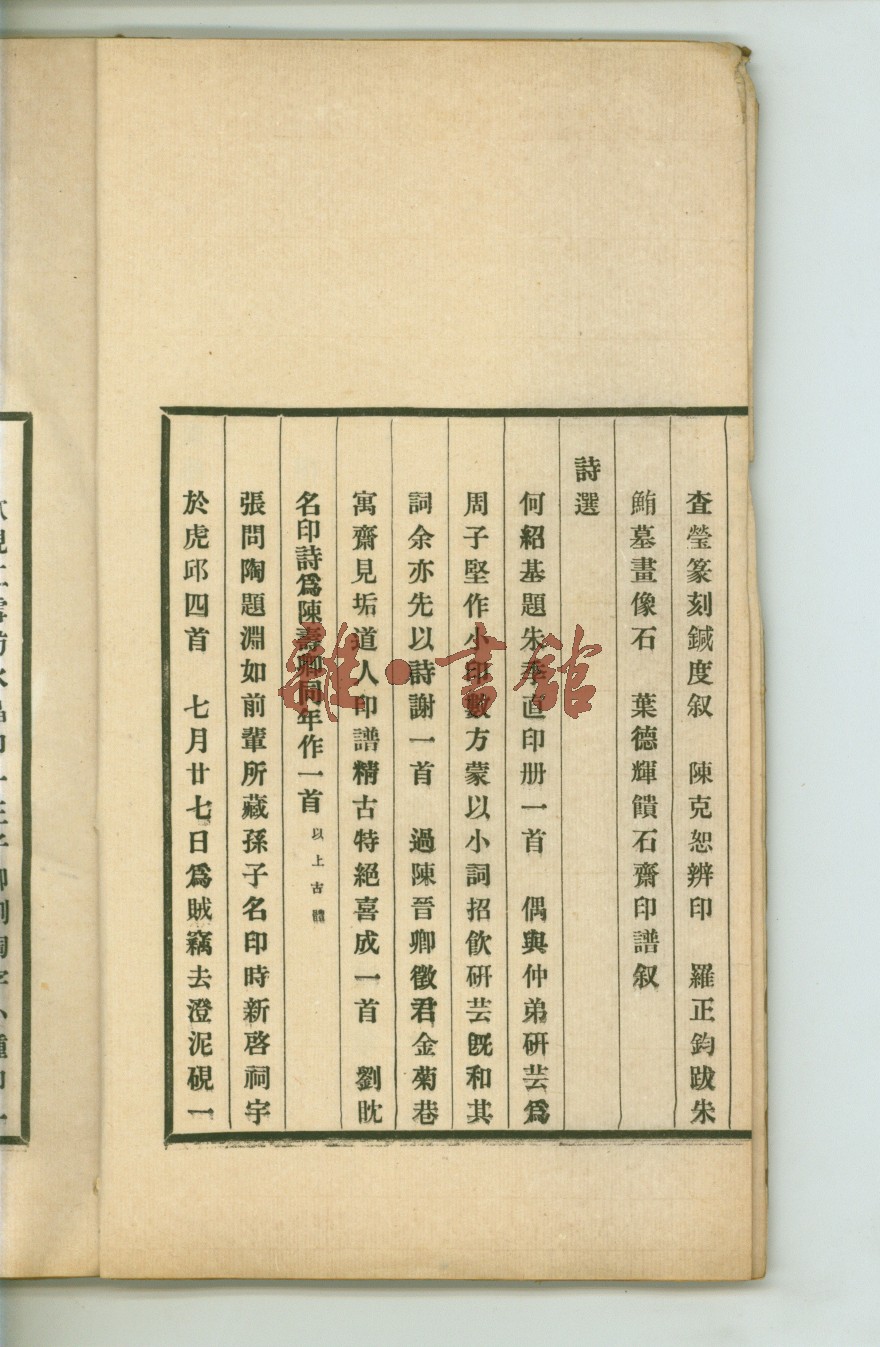 查瑩篆刻鍼度叙　陳克恕辨印　羅正鈞跋朱
鮪墓畫像石　葉德輝饋石齋印譜叙
詩選
何紹基題朱季直印册一首　偶與仲弟研芸爲
周子堅作小印數方蒙以小詞招飲研芸既和其
詞余亦先以詩謝一首　過陳晉卿徵君金菊巷
寓齋見垢道人印譜精古特絕喜成一首　劉眈
名印詩爲陳壽卿同年作一首以上古體
張問陶題淵如前輩所藏孫子名印時新啓祠宇
於虎邱四首　七月廿七日爲賊竊去澄泥硯一
雜·書館